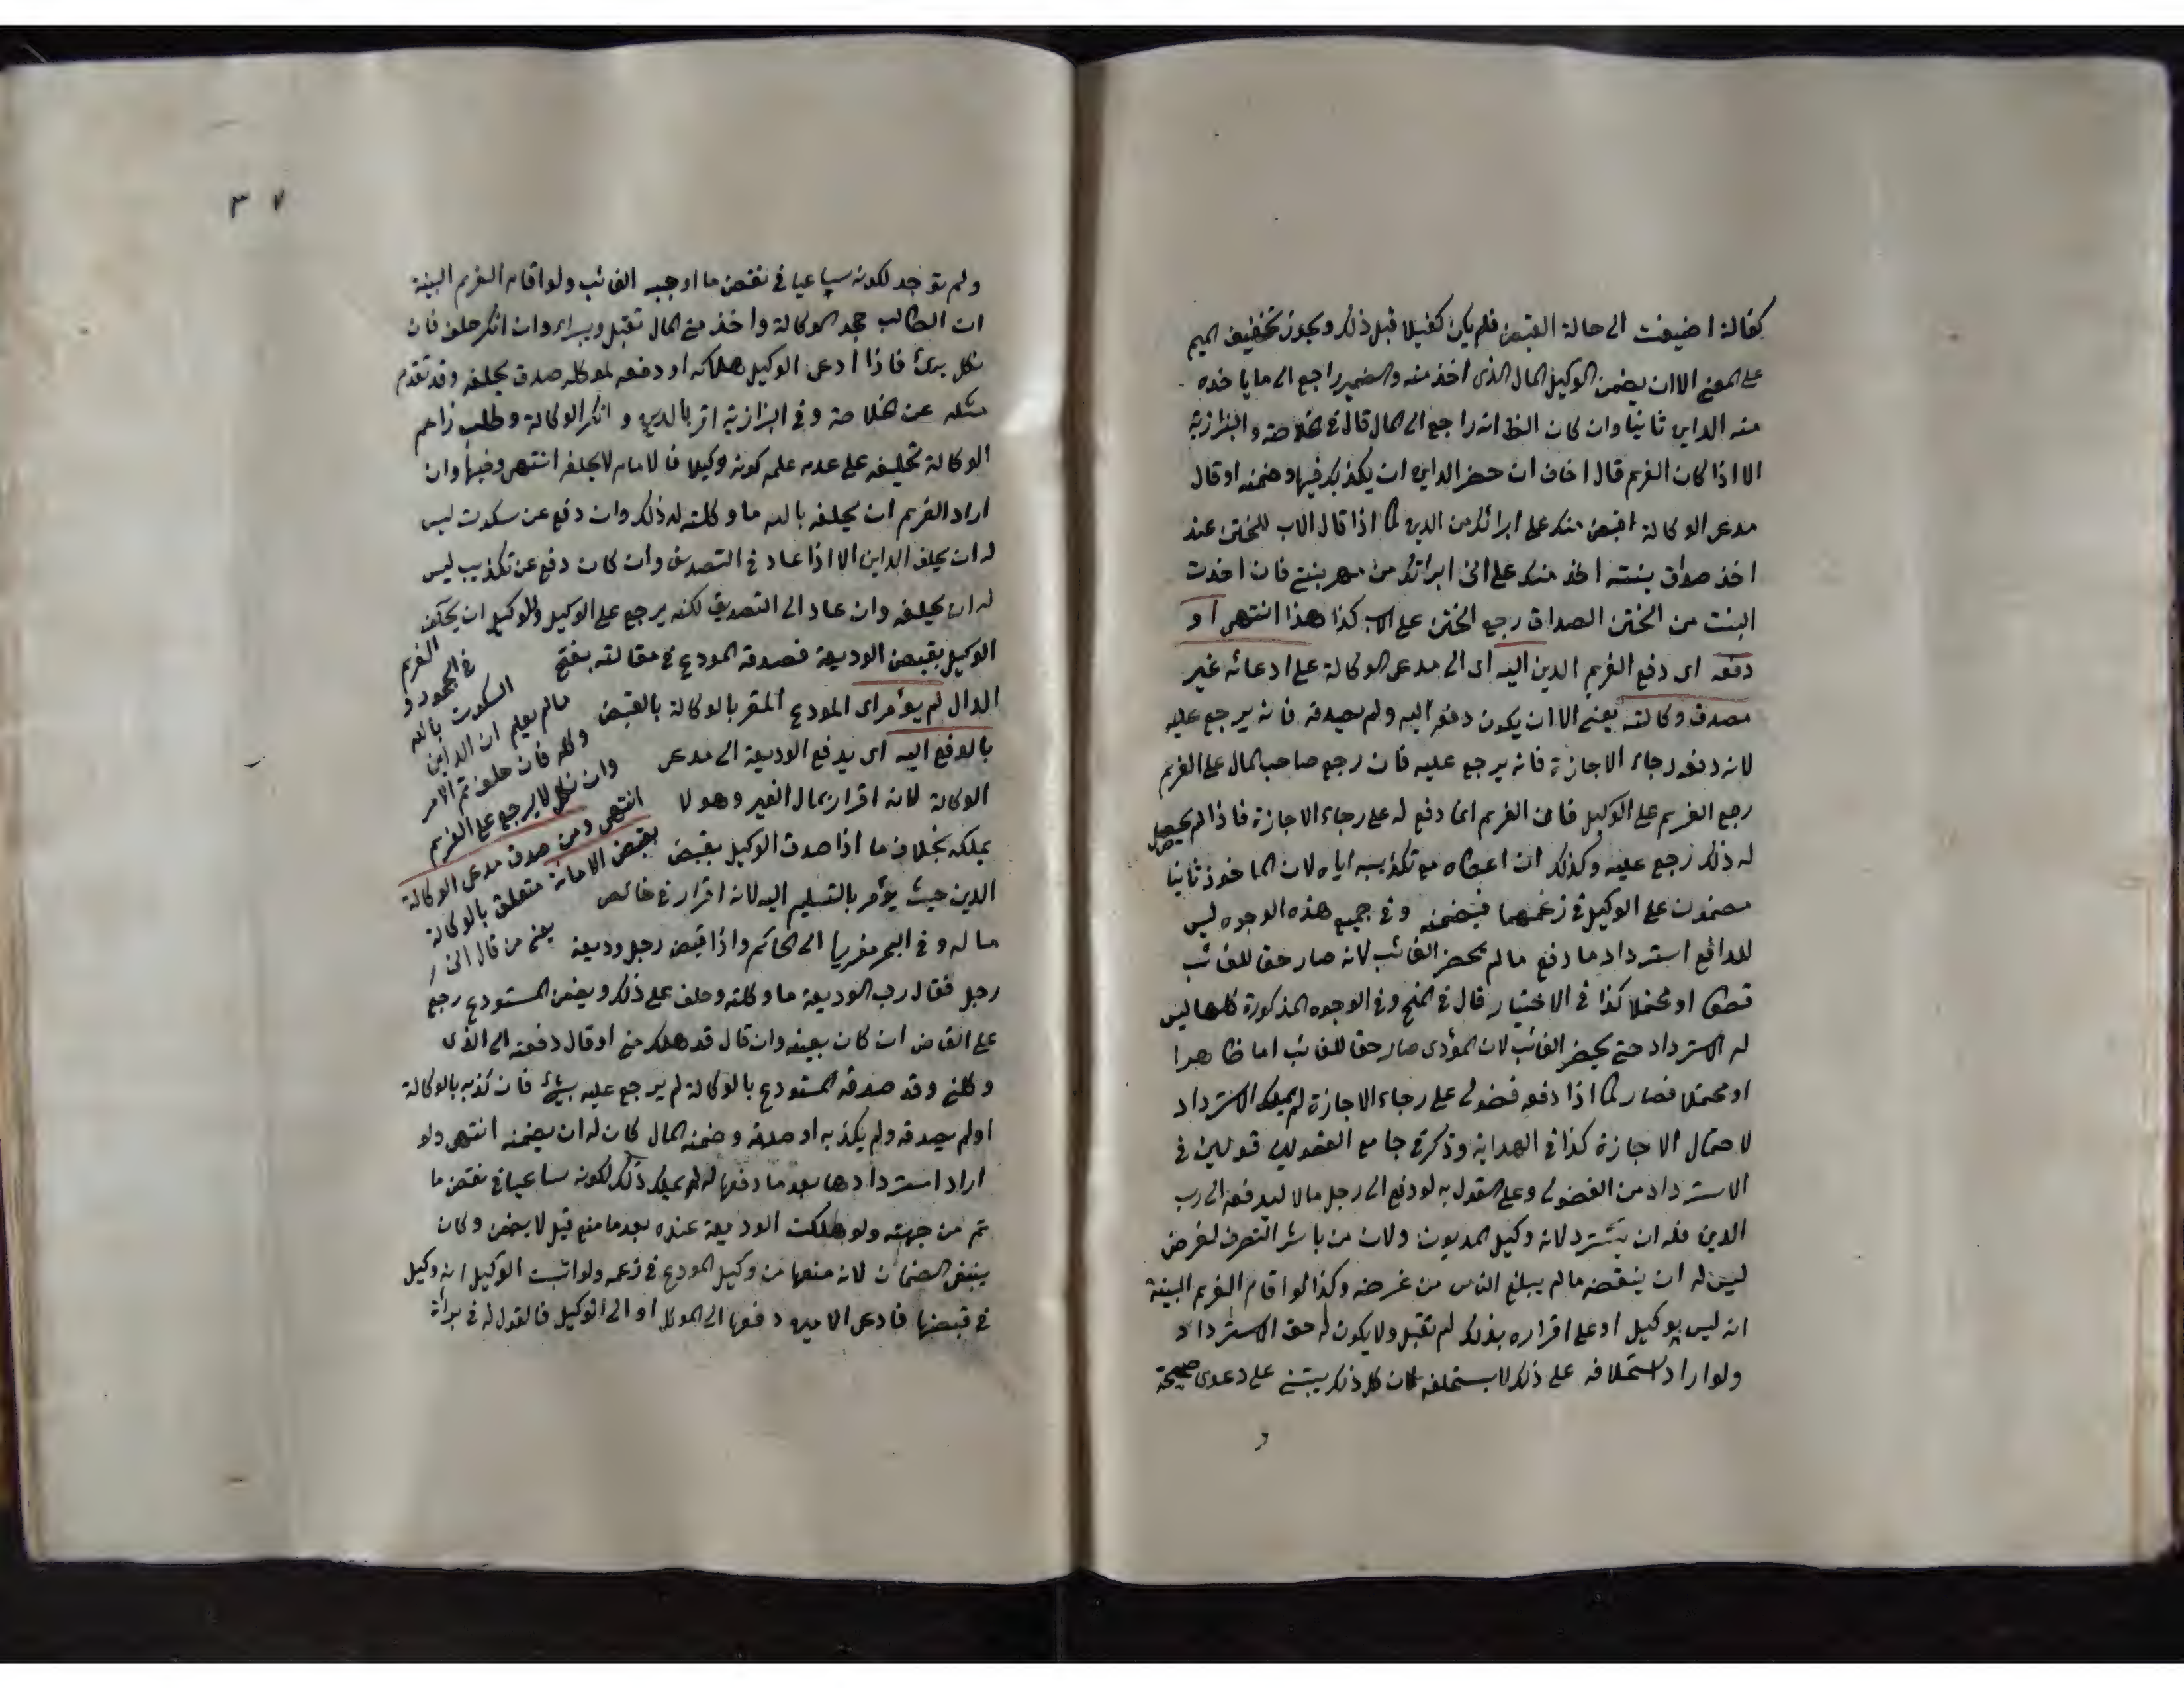 كفالة اضيفت الى حالة القبض فلم يكن كفيلا قبل ذلك ويجوز تخفيف الميم
على المعنى الا ان يضمن الوكيل المال الذى اخذ منه والضمير راجع الى ما ياخذه
منه الداين ثانيا وان كان الظ انه راجع الى المال قال فى الخلاصة والبزازية
الا اذا كان الغريم قال اخاف ان حضر الداين ان يكذبك فيها وضمنه او قال
مدعى الوكالة اقبض منك على ابرائك من الدين كما اذا قال الاب للختن عند
اخذ صداق بنته اخذ منك على انى ابراتك من مهر بنتى فان اخذت
البنت من الختن الصداق رجع الختن على الاب كذا هذا انتهى او
دفعه اى دفع الغريم الدين اليه اى الى مدعى الوكالة على ادعائه غير
مصدق وكالته يعنى الا ان يكون دفع اليه ولم يصدقه فانه يرجع عليه
لانه دفعه رجاء الاجازة فانه يرجع عليه فان رجع صاحب المال على الغريم
رجع الغريم على الوكيل فان الغريم انما دفع له على رجاء الاجازة فاذا لم يحصل
له ذلك رجع عليه وكذلك ان اعطاه مع تكذيبه اياه لان الماخوذ ثانيا
مضمون على الوكيل فى زعمهما فيضمنه وفى جميع هذه الوجوه ليس
للدافع استرداد ما دفع ما لم يحضر الغائب لانه صار حق للغائب
قطعا او محتملا كذا فى الاختيار قال فى المنح وفى الوجوه المذكورة كلها ليس
له الاسترداد حتى يحضر الغائب لان المؤدى صار حقا للغائب اما ظاهرا
او محتملا فصار كما اذا دفعه فضولى على رجاء الاجازة لم يملك الاسترداد
لاحتمال الاجازة كذا فى الهداية وذكر فى جامع الفصولين قولين فى
الاسترداد من الفضولى وعلى القول به لو دفع الى رجل مالا ليدفعه الى رب
الدين فله ان يسترد لانه وكيل المديون ولان من باشر التصرف لغرض
ليس له ان ينقضه ما لم يبلغ الناس من غرضه وكذا لو اقام الغريم البينة
انه ليس بوكيل او على اقراره بذلك لم تقبل ولا يكون له حق الاسترداد
ولو اراد استحلافه على ذلك لا يستحلف لان كل ذلك يبتنى على دعوى صحيحة
و
٣٧
ولم توجد لكونه ساعيا فى نقض ما اوجبه الغائب ولو اقام الغريم البينة
ان الطالب جحد الوكالة واخذ منى المال تقبل ويبراء وان انكر حلف فان
نكل برئ فاذا ادعى الوكيل هلاكه او دفعه لموكله صدق بحلفه وقد تقدم
مثله عن الخلاصة وفى البزازية اقر بالدين وانكر الوكالة وطلب زاعم
الوكالة تحليفه على عدم علمه كونه وكيلا فالامام لا يحلفه انتهى وفيها وان
اراد الغريم ان يحلفه بالله ما وكلته له ذلك وان دفع عن سكوت ليس
له ان يحلف الداين الا اذا عاد فى التصديق وان كان دفع عن تكذيب ليس
له ان يحلفه وان عاد الى التصديق لكنه يرجع على الوكيل وللوكيل ان يحلف
الغريم
فى الجحود و
السكوت بالله
مالم يعلم ان الداين
وكله فان حلف تم الامر
وان نكل لا يرجع على الغريم
انتهى ومن صدق مدعى الوكالة
بقبض الامانة متعلق بالوكالة
يعنى من قال انى
الوكيل بقبض الوديعة فصدقه المودع فى مقالته بفتح
الدال لم يؤمر اى المودع المقر بالوكالة بالقبض
بالدفع اليه اى يدفع الوديعة الى مدعى
الوكالة لانه اقرار بمال الغير وهو لا
يملكه بخلاف ما اذا صدق الوكيل بقبض
الدين حيث يؤمر بالتسليم اليه لانه اقرار فى خالص
ماله وفى البحر معزيا الى الحاكم واذا قبض رجل وديعة
رجل فقال رب الوديعة ما وكلته وحلف على ذلك ويضمن المستودع رجع
على القابض ان كان بعينه وان قال قد هلك منى او قال دفعته الى الذى
وكلنى وقد صدقه المستودع بالوكالة لم يرجع عليه بشئ فان كذبه بالوكالة
او لم يصدقه ولم يكذبه او صدقه وضمنه المال كان له ان يضمنه انتهى ولو
اراد استردادها بعد ما دفعها له لم يملك ذلك لكونه ساعيا فى نقض ما
تم من جهته ولو هلكت الوديعة عنده بعد ما منع قيل لا يضمن وكان
ينبغى الضمان لانه منعها من وكيل المودع فى زعمه ولو اثبت الوكيل انه وكيل
فى قبضها فادعى الامين دفعها الى الموكل او الى الوكيل فالقول له فى براءة